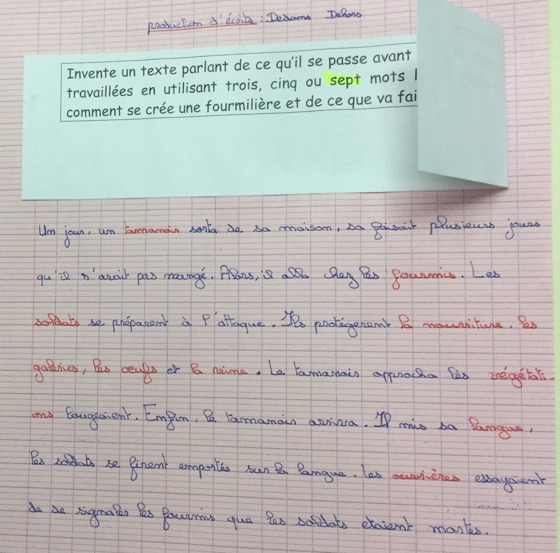 production d'écrits : Dedans Dehors
Invente un texte parlant de ce qu'il se passe avant
travaillées en utilisant trois, cinq ou sept mots
comment se crée une fourmilière et de ce que va fai
Um jour, un tamanoir sorta de sa maison, sa faisait plusieurs jours
qu'il n'avait pas mangé. Alors, il alla chez les fourmis. Les
soldats se préparent à l'attaque. Ils protégèrent la nourriture, les
galeries, les oeufs et la reine. Le tamanoir approcha les végétati-
ons bougeaient. Enfin, le tamanoir arriva. Il mis sa langue,
les soldats se firent emportés sur la langue. Les ouvrières essayaient
de se signaler les fourmis que les soldats étaient mortes.